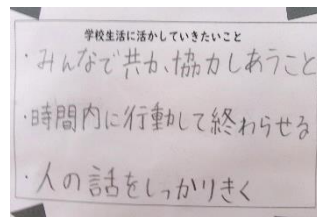 学校生活に活かしていきたいこと
・みんなで共か、協力しあうこと
・時間内に行動して終わらせる
・人の話をしっかりきく